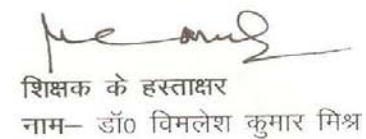 शिक्षक के हस्ताक्षर
नाम– डॉ0 विमलेश कुमार मिश्र